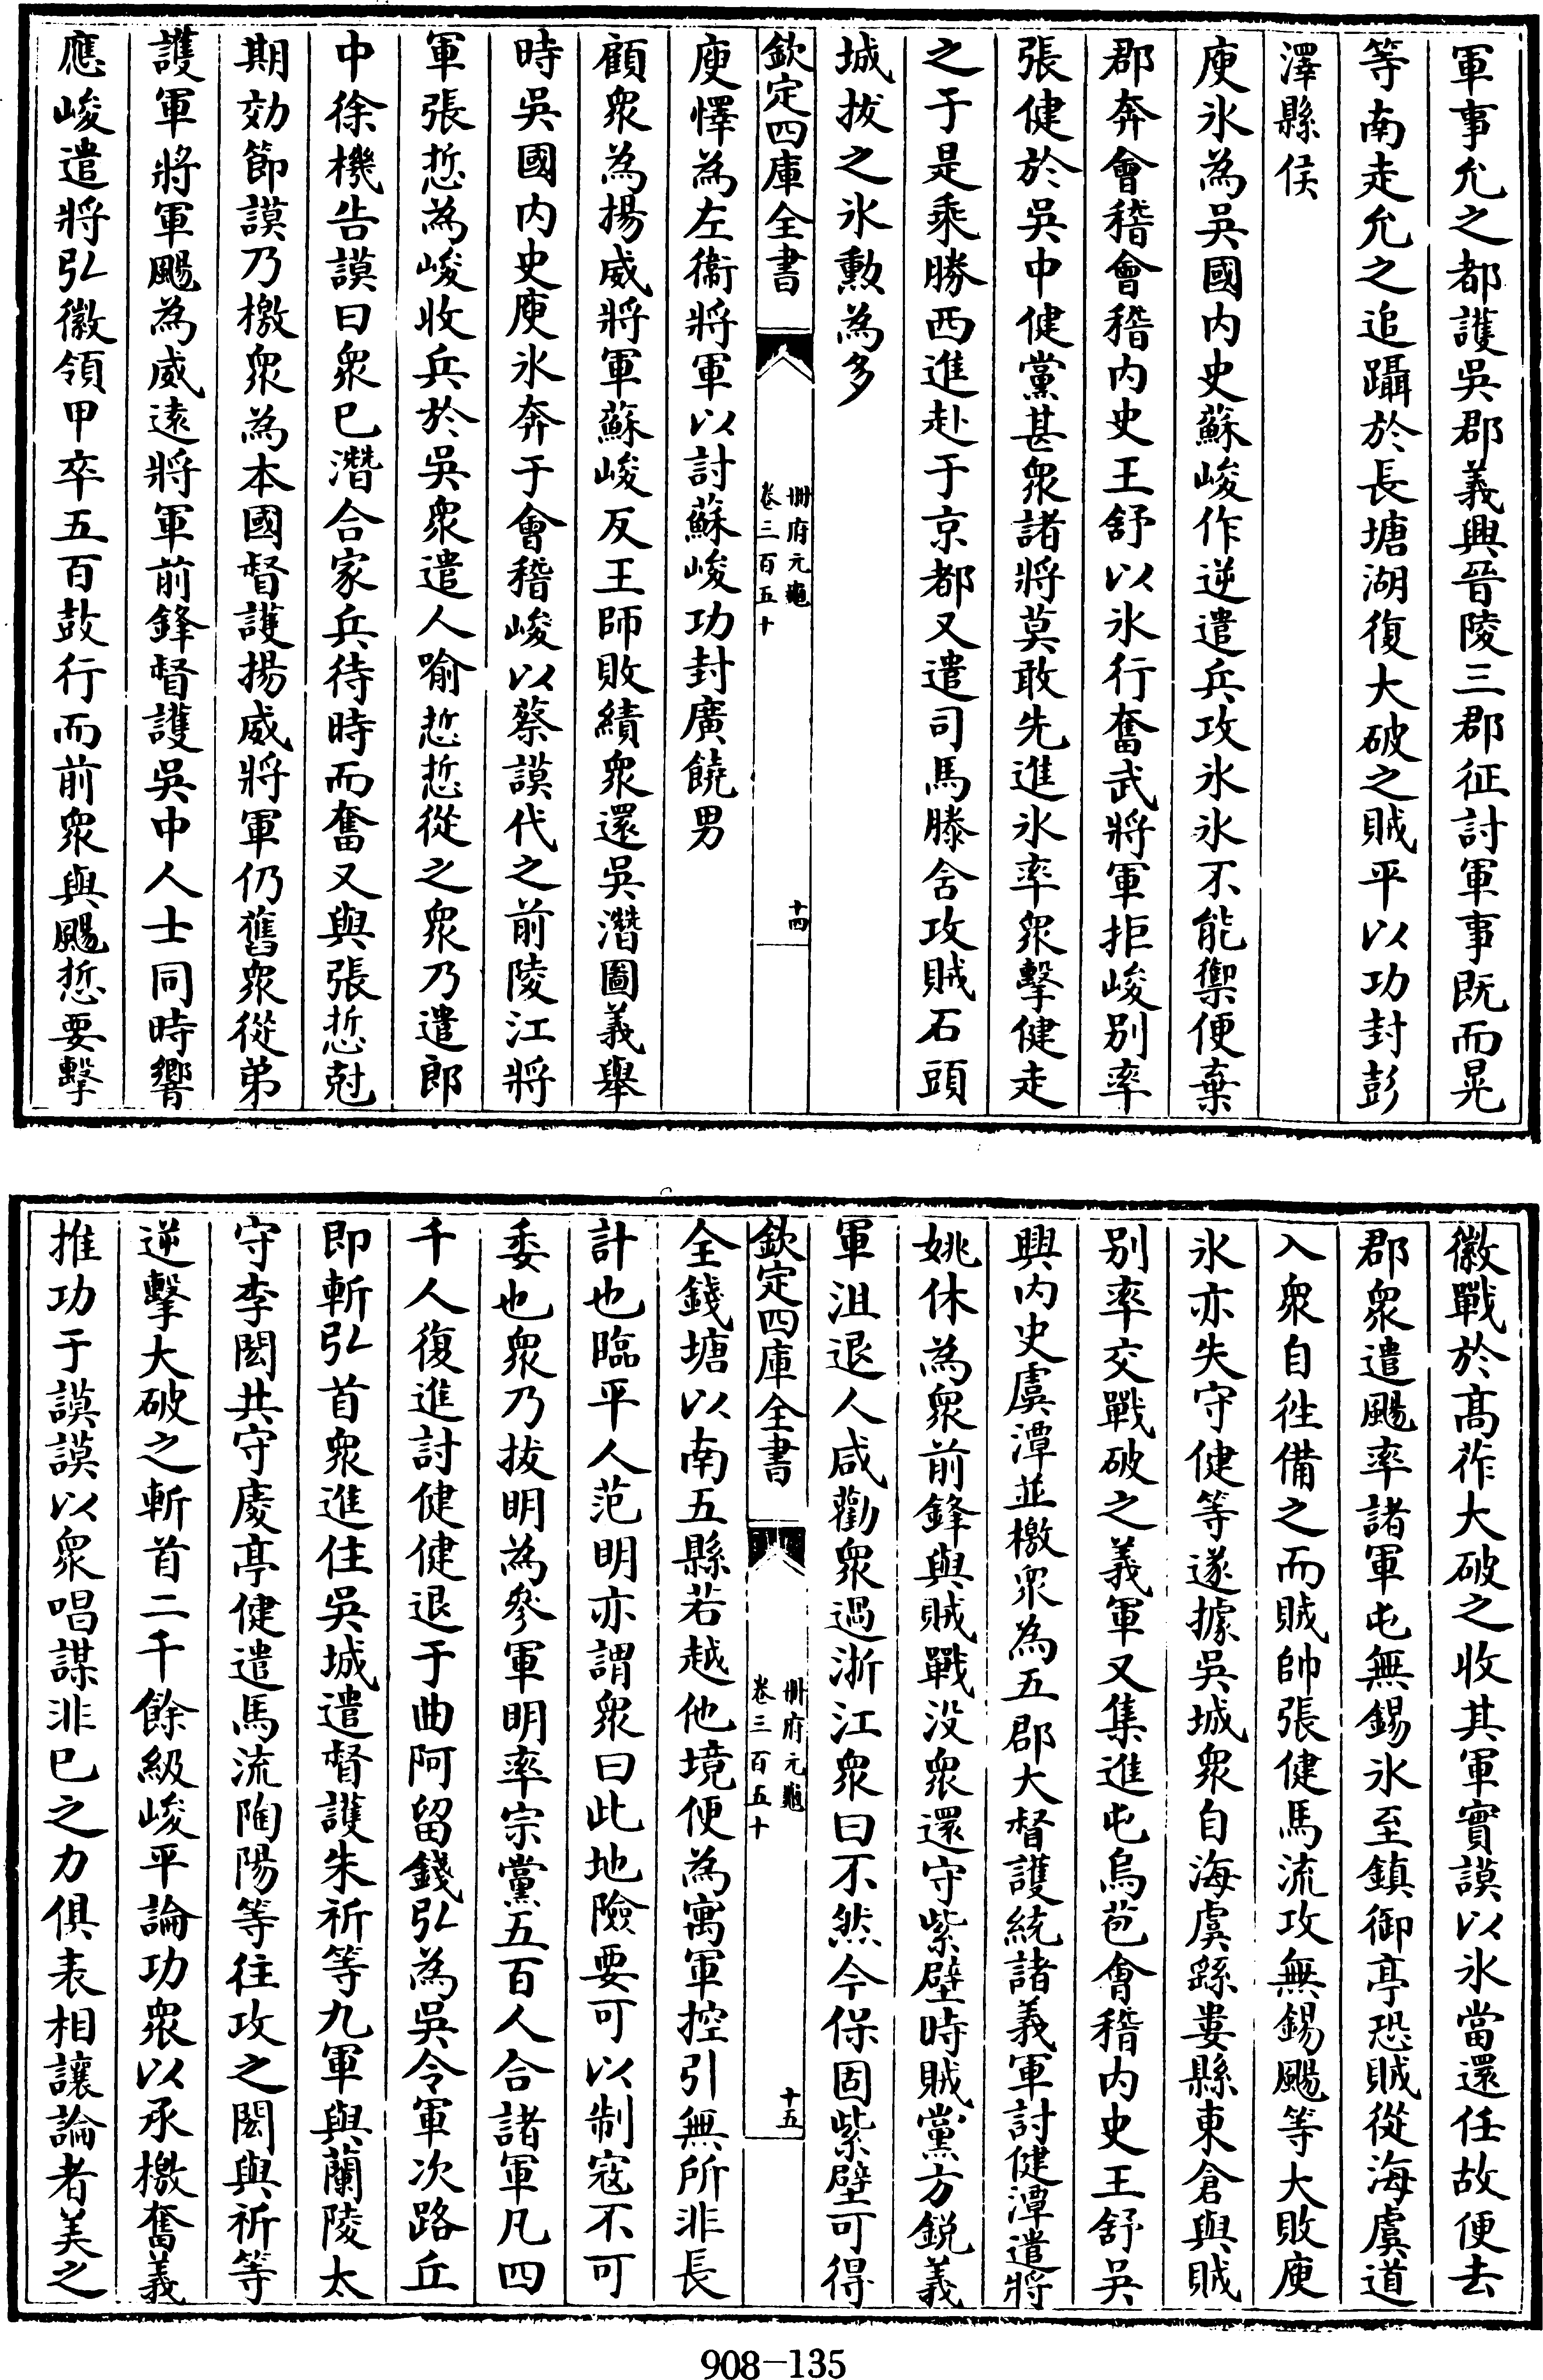 軍事允之都護吳郡義興晉陵三郡征討軍事既而晃
等南走允之追躡於長塘湖復大破之賊平以功封彭
澤縣侯
庾氷為吳國内史蘇峻作逆遣兵攻氷氷不能禦便棄
郡奔會稽會稽内史王舒以氷行奮武將軍拒峻别率
張健於吳中健黨甚衆諸將莫敢先進氷率衆擊健走
之于是乘勝西進赴于京都又遣司馬滕含攻賊石頭
城拔之氷勲為多
欽定四庫全書
册府元龜
卷三百五十
十四
庾懌為左衞將軍以討蘇峻功封廣饒男
顧衆為揚威將軍蘇峻反王師敗績衆還吳潛圖義舉
時吳國内史庾氷奔于會稽峻以蔡謨代之前陵江將
軍張悊為峻收兵於吳衆遣人喻悊悊從之衆乃遣郎
中徐機告謨曰衆已潛合家兵待時而奮又與張悊尅
期効節謨乃檄衆為本國督護揚威將軍仍舊衆從弟
護軍將軍颺為威遠將軍前鋒督護吳中人士同時響
應峻遣將弘徽領甲卒五百鼓行而前衆與颺悊要擊
徽戰於髙莋大破之收其軍實謨以氷當還任故便去
郡衆遣颺率諸軍屯無錫氷至鎮御亭恐賊從海虞道
入衆自往備之而賊帥張健馬流攻無錫颺等大敗庾
氷亦失守健等遂據吳城衆自海虞繇婁縣東倉與賊
别率交戰破之義軍又集進屯烏苞會稽内史王舒吳
興内史虞潭並檄衆為五郡大督護統諸義軍討健潭遣將
姚休為衆前鋒與賊戰没衆還守紫壁時賊黨方銳義
軍沮退人咸勸衆過浙江衆曰不然今保固紫壁可得
欽定四庫全書
册府元龜
卷三百五十
十五
全錢塘以南五縣若越他境便為寓軍控引無所非長
計也臨平人范明亦謂衆曰此地險要可以制寇不可
委也衆乃拔明為參軍明率宗黨五百人合諸軍凡四
千人復進討健健退于曲阿留錢弘為吳令軍次路丘
即斬弘首衆進住吳城遣督護朱祈等九軍與蘭陵太
守李閎共守慶亭健遣馬流陶陽等往攻之閎與祈等
逆擊大破之斬首二千餘級峻平論功衆以承檄奮義
推功于謨謨以衆唱謀非已之力俱表相讓論者美之
908-135